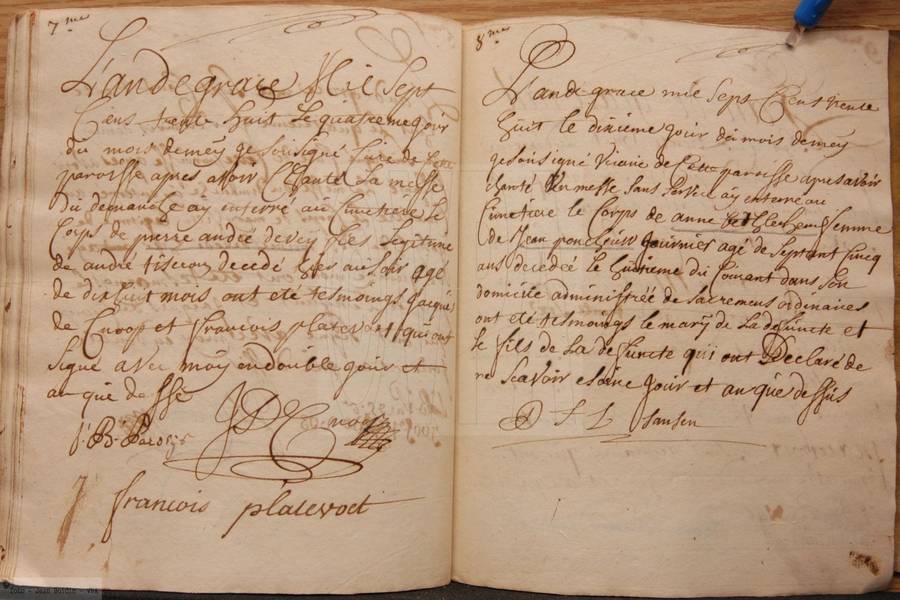 7me
L'an de grace Mil Sept
Cens trente huit le quatreme jour
du mois de mey je sousigné Cure de cette
paroisse apres avoir Chanté La messe
du demanche ay interré au Cimetiere le
Corps de pierre andré devey fils Legitime
de andré decedé hier au Soir agé
de dixhuit mois ont eté tesmoings jacque
de Cnoop et francois platevoet qui ont
Signé avec moy en double jour et
an que desse
J D Cnoop
francois platevoet
8me
L'an de grace mil Sept Cens trente
huit le dixieme jour du mois de mey
je sousigné Vicaire de Cette paroisse apres avoir
chanté un messe sans service ay enterre au
Cimetiere le Corps de anne femme
de Jean journier agé de Septant Cincq
ans decedée le huitieme du Courant dans son
domicile administrée de sacremens ordinaires
ont eté tesmoings le mary de La defuncte et
le fils de La defuncte qui ont Declaré de
ne Scavoir escrire jour et an que dessus